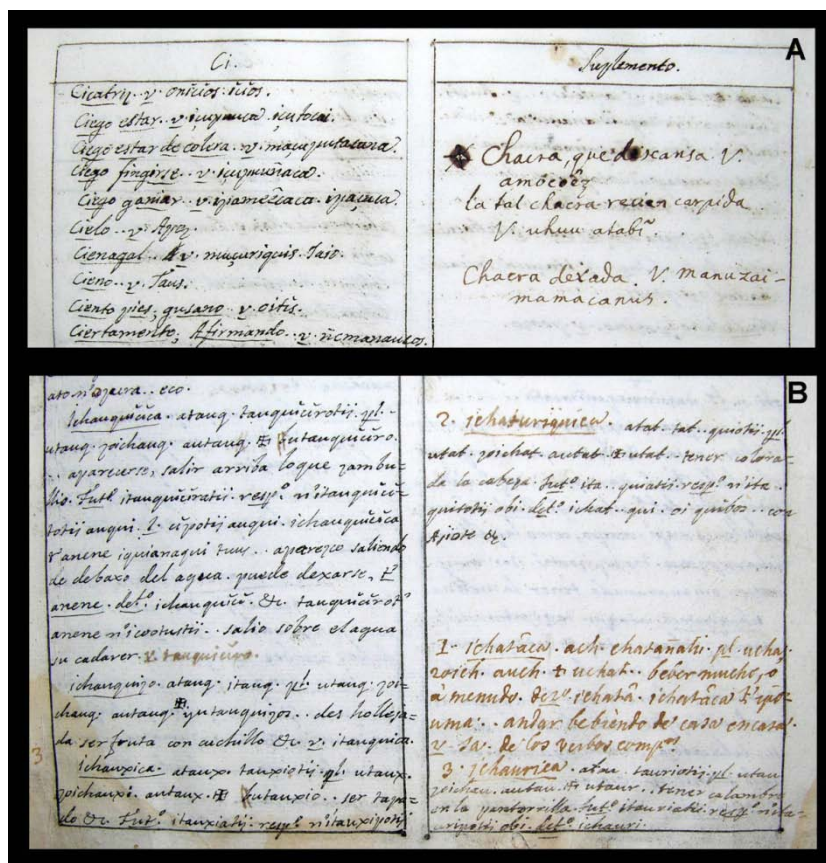 A
Ci.
Cicatriz. v. onicios icios.
Ciego estar. v. icupauca icutocai.
Ciego estar de colera. v.
Ciego fingirse. v. icupuñaca.
Ciego ganiar. v.
Cielo. v. Apez.
Cienagal. v. muçuriquis Taio.
Cieno. v. Taus.
Ciento pies, gusano v. oitis.
Ciertamente, Afirmando. v.
Suplemento.
Chacra, que descansa V.
amôcôêz
la tal chacra reuen carpida
V. uhuu atabi.
Chacra dexada. V. manuzai-
mamacanus.
B
eco.
ichanquicica. atanq. tanquicirotij pl.
utanq. zoichanq. autanq. utanquiciro.
aparecerse, salir arriba loque zambu-
llio. itanquiciratij resp.
totij auqui. ichanquicica
anene iquianaqui aparezco saliendo
de debaxo del aqua. puede dexarse,
anene. det. ichanquici. &c.
anene salio sobre el aqua
su cadaver. v. tanquiciro.
ichanquizo. atanq. itanq. pl. utanq. zoi-
chanq. autanq. yutanquizos. des holleja-
da ser fruta con cuchillo &c v. itanquica.
3
ichauxica. ataux. tauxiotij pl. utaux.
zoichauxi. autaux. utauxio. ser tapa-
do &c. Fut. itauxiatij resp.
2. ichaturiquica. atat. tat. quiotij pl.
utat. zoichat autat utat. tener colora-
da la cabeza fut. ita quiatij resp.
quitotij obi det. ichat. qui. oi quibos con
Ajiote &c.
1. ichatâca. ach. chatañatij pl. ucha,
zoich. auch. uchat. beber mucho, o
à menudo. ichatâ. ichatâca
uma. andar bebiendo de casa en casa.
v. sa. de los verbos comp.
3 ichaurica. atau tauriotij pl utau
zoichau. autau. utaur. tener calambre
en la pantorrilla fut. itauriatij resp.
obi. det. ichauri.